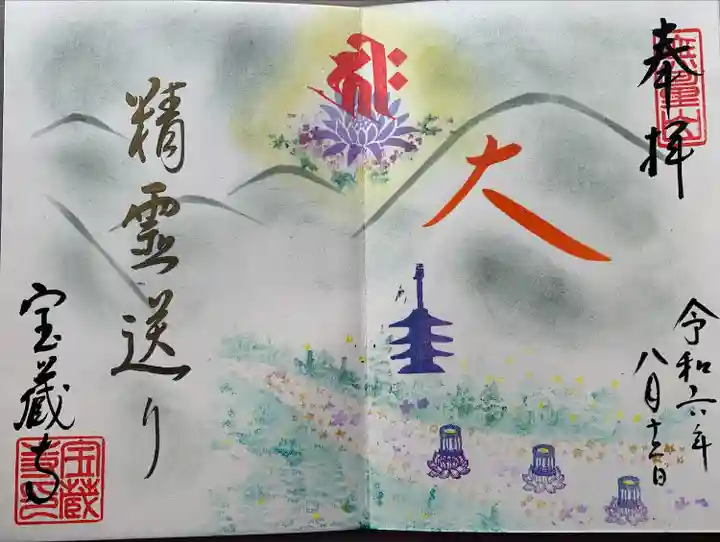 奉拝
大
令和六年
八月十日
精霊送り
宝蔵寺
宝蔵
寺印